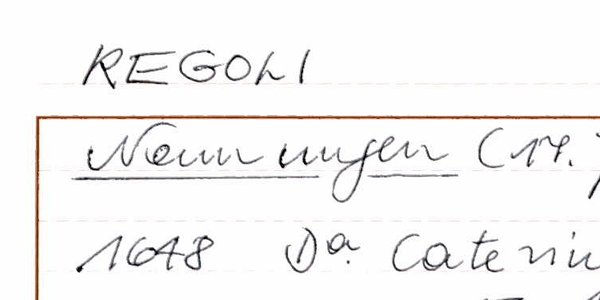 REGOLI
Nennungen (17.)
1648 Dª. Caterin